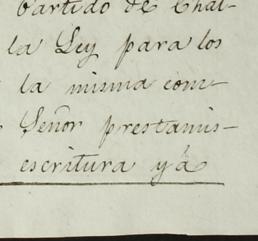 Partido de Chal-
la Ley para los
la misma com-
Señor prestamis-
escritura yá